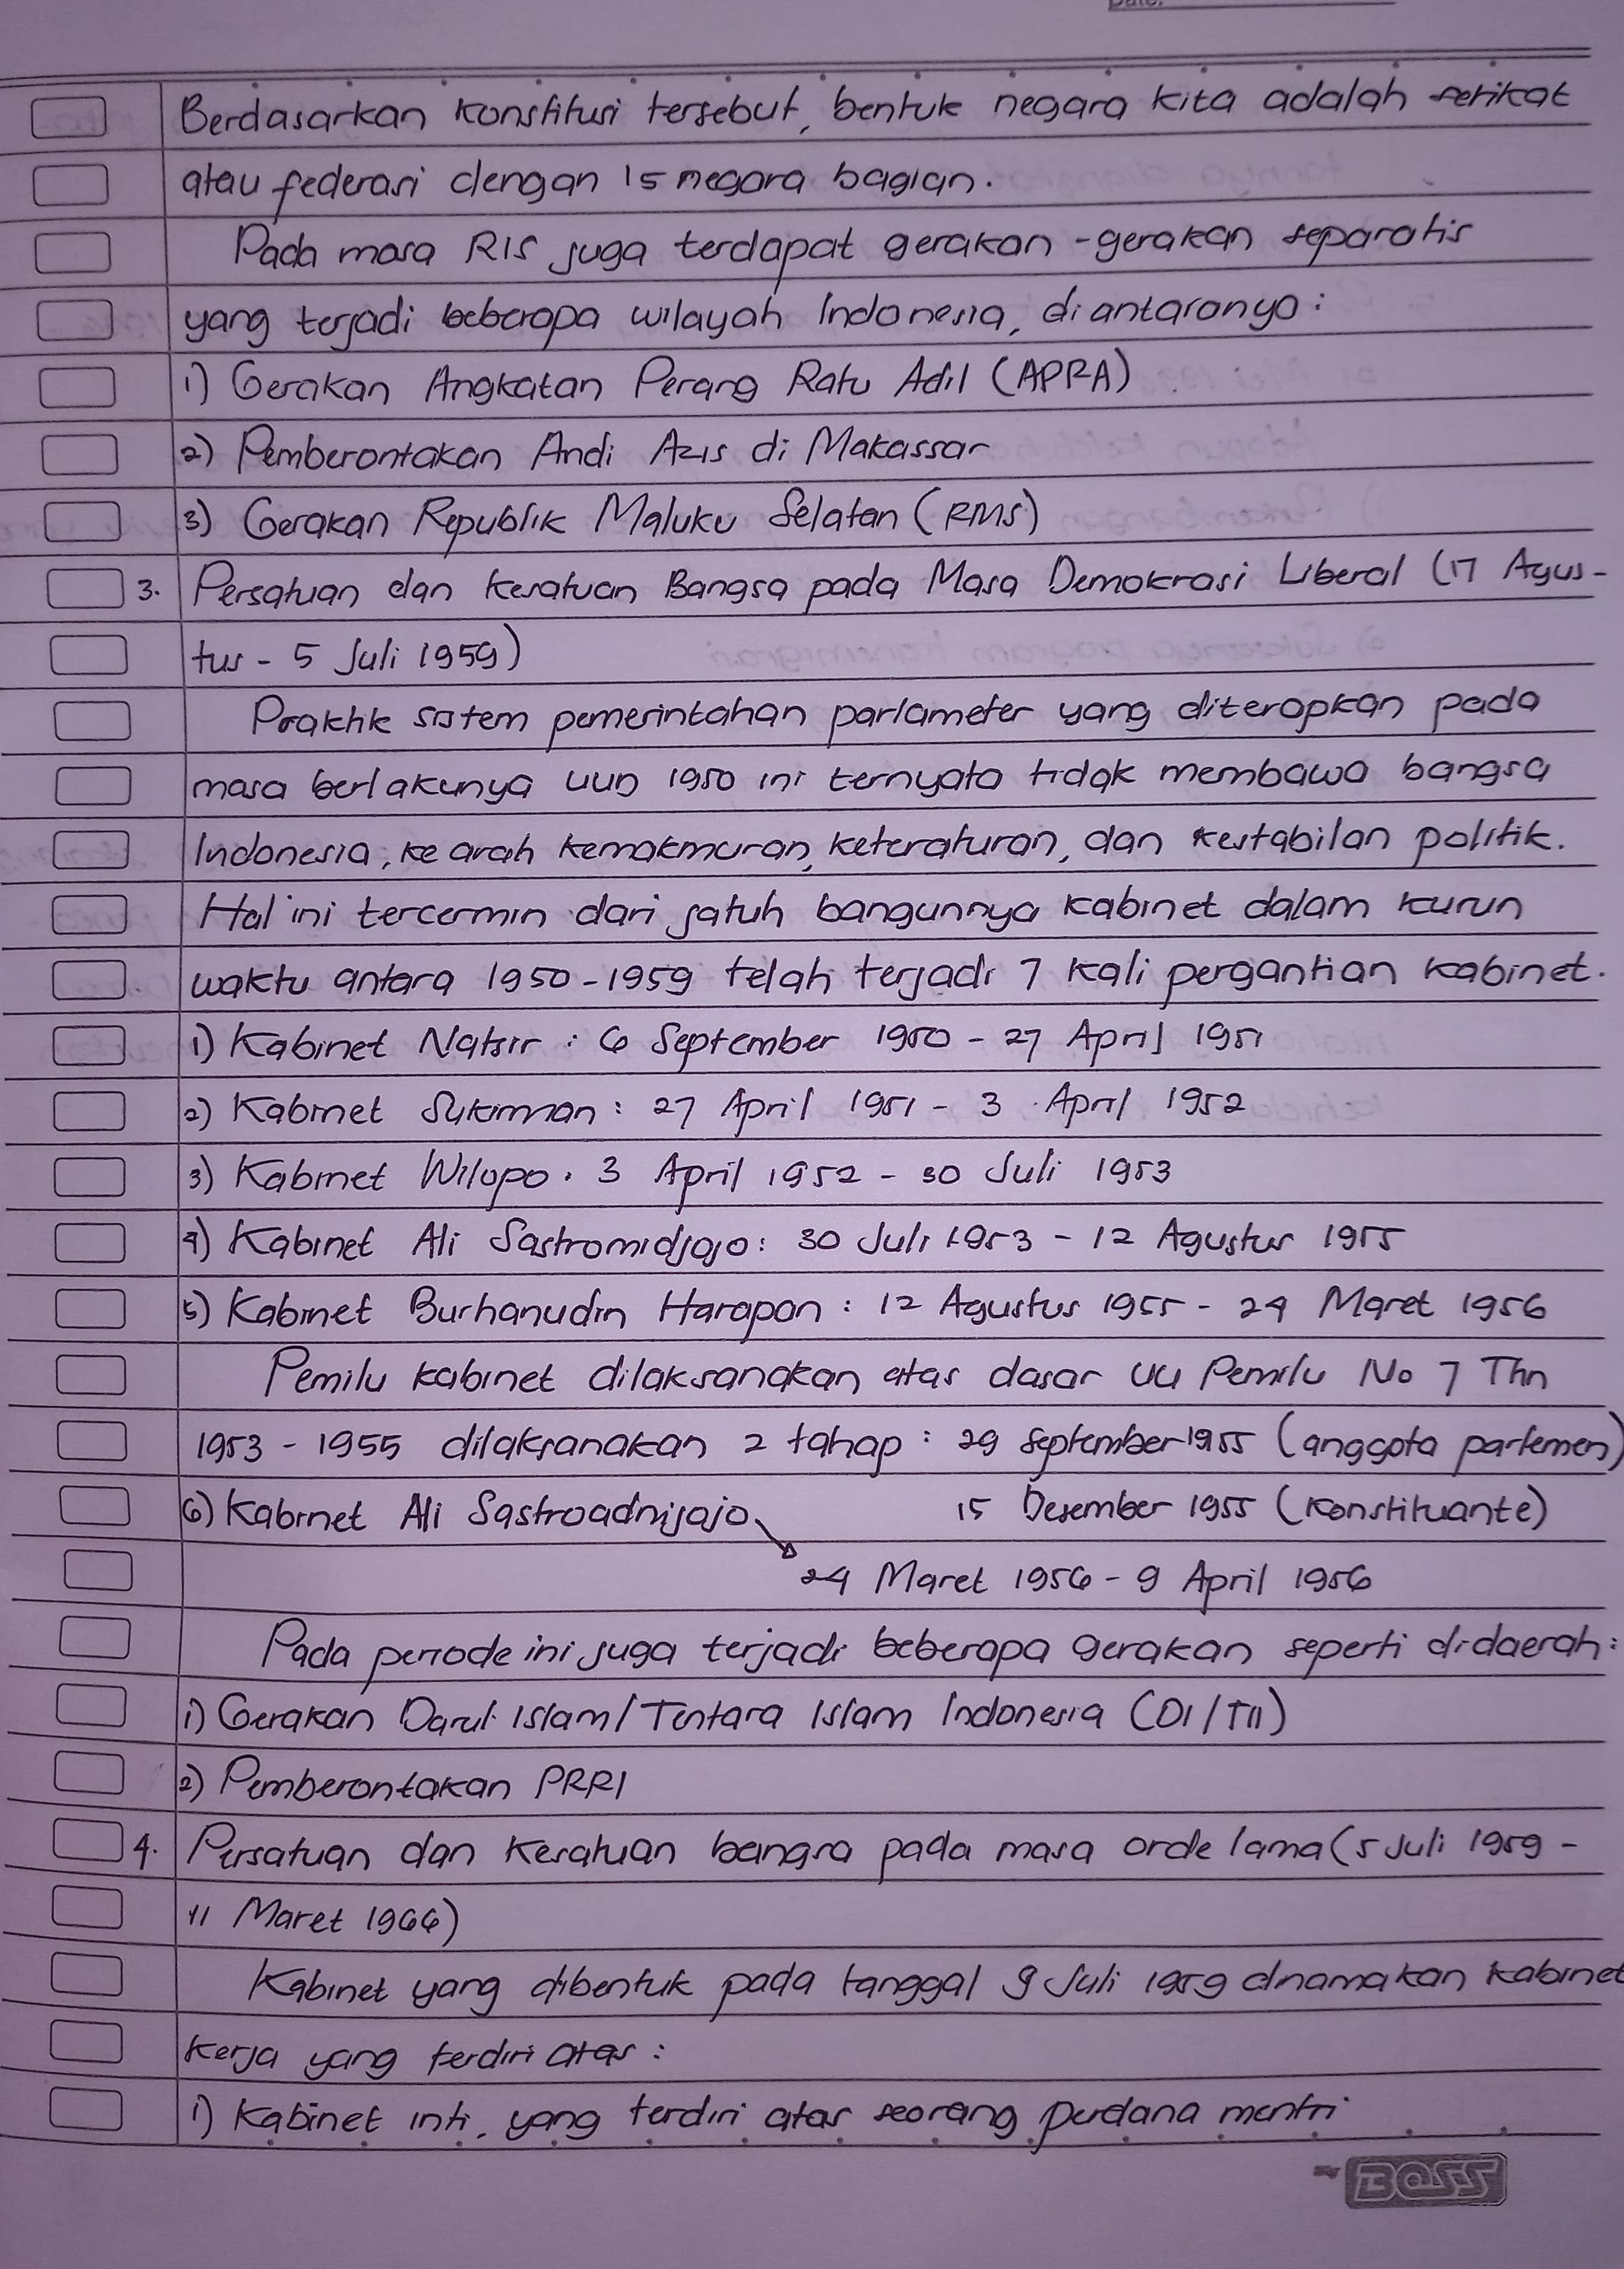 Date:
Berdasarkan Konstitusi tersebut, bentuk negara kita adalah serikat
atau federasi dengan 15 negara bagian.
Pada masa RIS juga terdapat gerakan - gerakan separatis
yang terjadi beberapa wilayah Indonesia, diantaranya :
1) Gerakan Angkatan Perang Ratu Adil (APRA)
2) Pemberontakan Andi Azis di Makassar
3) Gerakan Republik Maluku Selatan (RMS)
3. Persatuan dan Kesatuan Bangsa pada Masa Demokrasi Liberal (17 Agus-
tus - 5 Juli 1959)
Praktik sistem pemerintahan parlameter yang diterapkan pada
masa berlakunya UUD 1950 ini ternyata tidak membawa bangsa
Indonesia, ke arah kemakmuran, keteraturan, dan kestabilan politik.
Hal ini tercermin dari jatuh bangunnya kabinet dalam kurun
waktu antara 1950 - 1959 telah terjadi 7 kali pergantian kabinet.
1) Kabinet Natsir : 6 September 1950 - 27 April 1951
2) Kabinet Sukiman : 27 April 1951 - 3 April 1952
3) Kabinet Wilopo . 3 April 1952 - 30 Juli 1953
4) Kabinet Ali Sastromidjojo : 30 Juli 1953 - 12 Agustus 1955
5) Kabinet Burhanudin Harapan : 12 Agustus 1955 - 24 Maret 1956
Pemilu kabinet dilaksanakan atas dasar UU Pemilu No 7 Thn
1953 - 1955 dilaksanakan 2 tahap : 29 September 1955 (anggota parlemen)
6) Kabinet Ali Sastroadnijojo 15 Desember 1955 (Konstituante)
24 Maret 1956 - 9 April 1956
Pada periode ini juga terjadi beberapa gerakan seperti didaerah :
1) Gerakan Darul Islam / Tentara Islam Indonesia (DI/TII)
2) Pemberontakan PRRI
4. Persatuan dan Kesatuan bangsa pada masa orde lama (5 Juli 1959 -
11 Maret 1966)
Kabinet yang dibentuk pada tanggal 9 Juli 1959 dinamakan kabinet
kerja yang terdiri atas :
1) Kabinet inti, yang terdiri atas seorang perdana mentri
BOSS